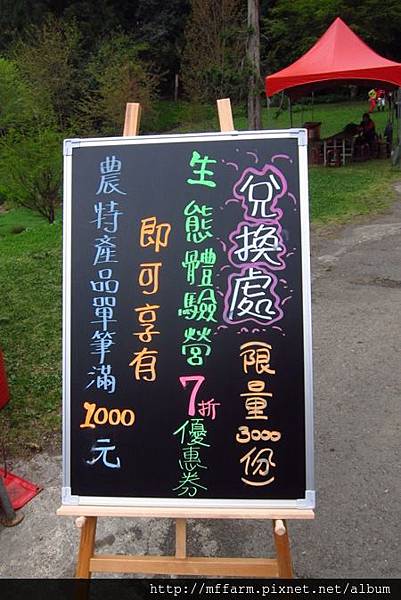 兌換處(限量3000份)
生態體驗營7折優惠券
即可享有
農特產品單筆滿1000元
http://mffarm.pixnet.net/album